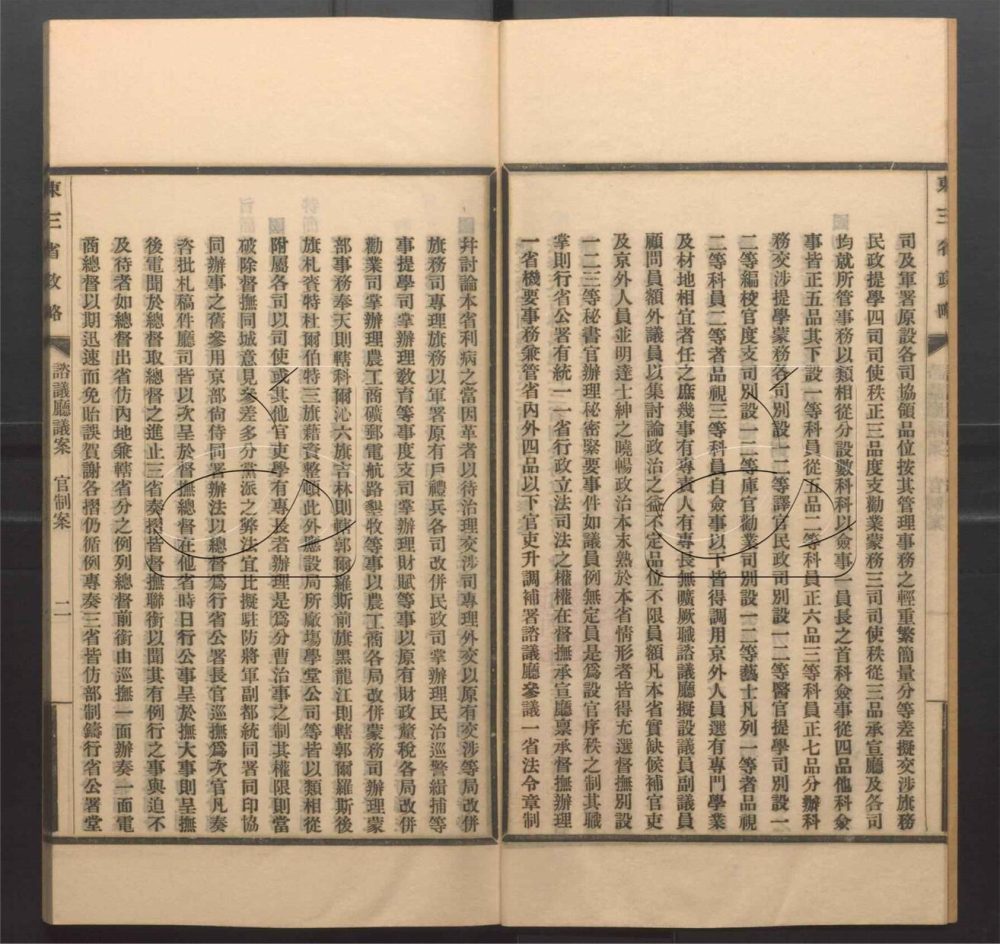 司及軍署原設各司協領品位按其管理事務之輕重繁簡量分等差擬交涉旗務
民政提學四司司使秩正三品度支勸業蒙務三司司使秩從三品承宣廳及各司
均就所管事務以類相從分設數科科以僉事一員長之首科僉事從四品他科僉
事皆正五品其下設一等科員從五品二等科員正六品三等科員正七品分辦科
務交涉提學蒙務各司別設一二等譯官民政司別設一二等醫官提學司別設一
二等編校官度支司別設一二等庫官勸業司別設一二等藝士凡列一等者品視
二等科員二等者品視三等科員自僉事以下皆得調用京外人員選有專門學業
及材地相宜者任之庶幾事有專責人有專長無曠厥職諮議廳擬設議員副議員
顧問員額外議員以集討論政治之益不定品位不限員額凡本省實缺候補官吏
及京外人員並明達士紳之曉暢政治本末熟於本省情形者皆得充選督撫別設
一二三等秘書官辦理秘密緊要事件如議員例無定員是爲設官序秩之制其職
掌則行省公署有統一一省行政立法司法之權權在督撫承宣廳禀承督撫辦理
一省機要事務兼管省內外四品以下官吏升調補署諮議廳參議一省法令章制
東三省政略
幷討論本省利病之當因革者以待治理交涉司專理外交以原有交涉等局改併
旗務司專理旗務以軍署原有戶禮兵各司改併民政司掌辦理民治巡警緝捕等
事提學司掌辦理教育等事度支司掌辦理財賦等事以原有財政釐稅各局改併
勸業司掌辦理農工商礦郵電航路墾牧等事以農工商各局改併蒙務司辦理蒙
部事務奉天則轄科爾沁六旗吉林則轄郭爾羅斯前旗黑龍江則轄郭爾羅斯後
旗札賚特杜爾伯特三旗藉資整頓此外應設局所廠塲學堂公司等皆以類相從
附屬各司以司使或其他官吏學有專長者辦理是爲分曹治事之制其權限則當
破除督撫同城意見參差多分黨派之弊法宜比擬駐防將軍副都統同署同印協
同辦事之舊參用京部尚侍同署辦法以總督爲行省公署長官巡撫爲次官凡奏
咨批札稿件廳司皆以次呈於督撫總督在他省時日行公事呈於撫大事則呈撫
後電聞於總督取總督之進止三省奏摺皆督撫聯銜以聞其有例行之事與迫不
及待者如總督出省仿內地兼轄省分之例列總督前銜由巡撫一面辦奏一面電
商總督以期迅速而免貽誤賀謝各摺仍循例專奏三省皆仿部制鑄行省公署堂
東三省政略
諮議廳議案 官制案
二